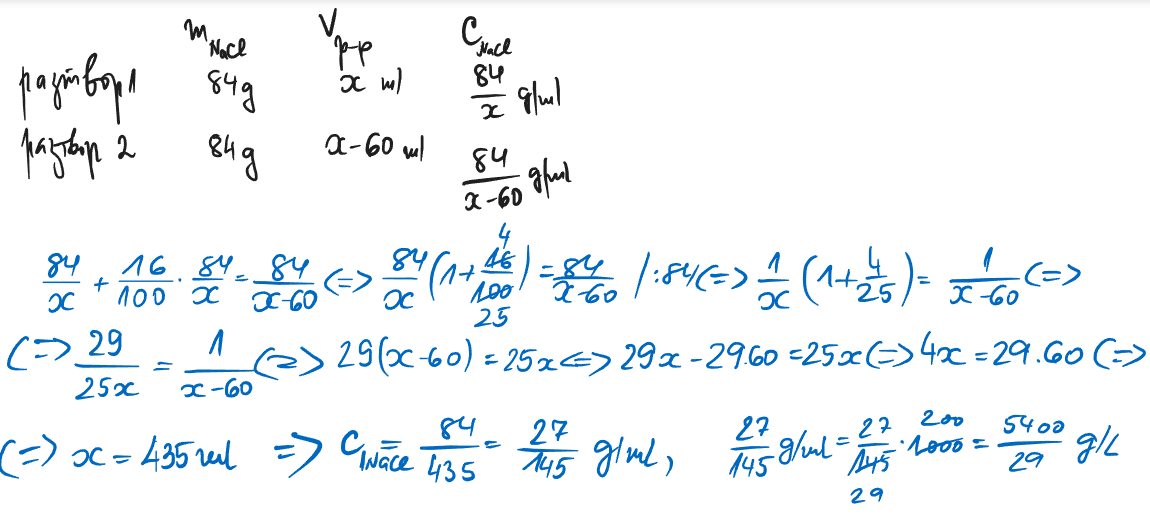 m_NaCl V_р-р C_NaCl
разтвор 1 84g x ml 84/x g/ml
разтвор 2 84g x-60 ml 84/(x-60) g/ml
84/x + 16/100 · 84/x = 84/(x-60) <=> 84/x (1+ 16/100 4/25) = 84/(x-60) /:84 <=> 1/x (1+4/25) = 1/(x-60) <=>
<=> 29/25x = 1/(x-60) <=> 29(x-60) = 25x <=> 29x - 29.60 = 25x <=> 4x = 29.60 <=>
<=> x = 435 ml => C_1NaCl = 84/435 = 27/145 g/ml, 27/145 g/ml = 27/145 29 · 1000 200 = 5400/29 g/L